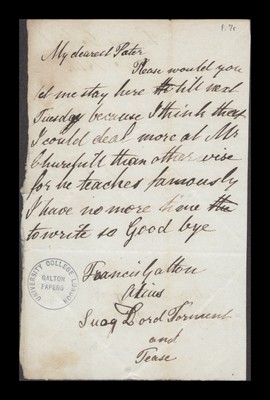 p. 7c
My dearest Pater
Please would you
let me stay here till next
Tuesday because I think that
I could deal more at Mr
Churchill than other wise
for he teaches famously
I have no more time
to write so Good bye
Francis Galton
Alius
Snag Lord Torment
and
Tease
UNIVERSITY COLLEGE LONDON
GALTON
PAPERS